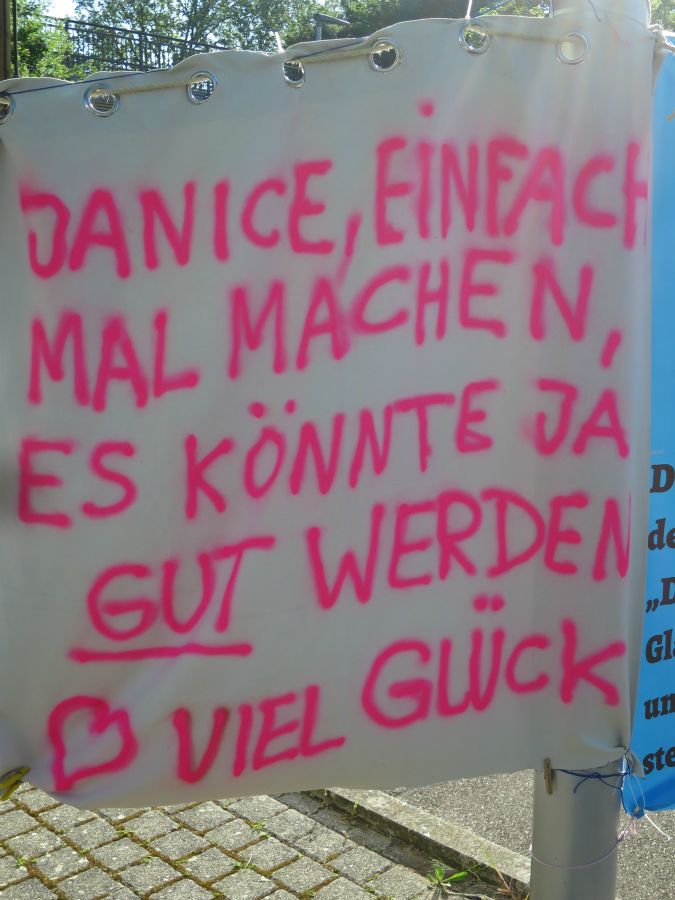 JANICE, EINFACH
MAL MACHEN,
ES KÖNNTE JA
GUT WERDEN
♡ VIEL GLÜCK